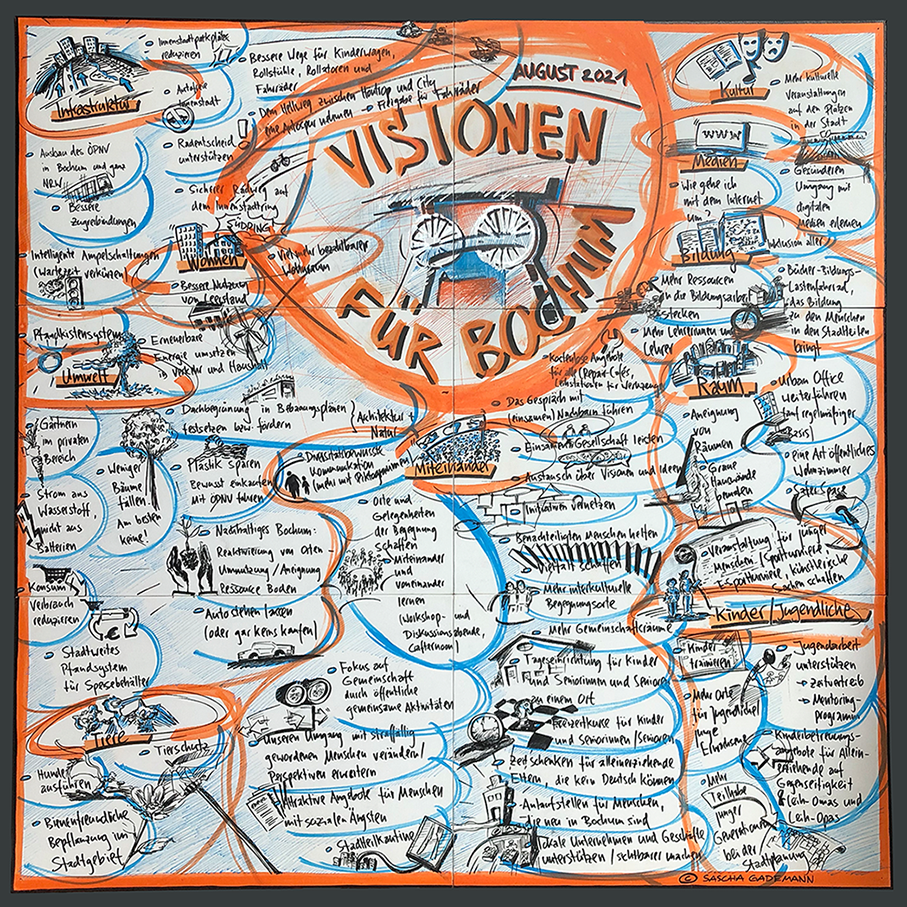 AUGUST 2021
VISIONEN
FÜR BOCHUM
Infrastruktur
Innenstadtparkplätze
reduzieren
Autofreie
Innenstadt
Bessere Wege für Kinderwagen,
Rollstühle, Rollatoren und
Fahrräder
Den Hellweg zwischen Hauptop und City
eine Autospur widmen → Freigabe für Fahrräder
Radentscheid
unterstützen
Sicherer Radweg auf
dem Innenstadtring
SÜDRING
Ausbau des ÖPNV
in Bochum und ganz
NRW
Bessere
Zugverbindungen
Intelligente Ampelschaltungen
(Wartezeit verkürzen)
Wohnen
Viel mehr bezahlbarer
Wohnraum
Bessere Nutzung
von Leerstand
Umwelt
Pfandkistensystem
Erneuerbare
Energie umsetzen
in Verkehr und Haushalt
Dachbegrünung in Bebauungsplänen
festsetzen bzw. fördern
Architektur +
Natur
Gärtnern
im privaten
Bereich
Weniger
Bäume
fällen.
Am besten
keine!
Plastik sparen
Bewusst einkaufen
Mit ÖPNV fahren
Strom aus
Wasserstoff,
nicht aus
Batterien
Nachhaltiges Bochum:
Reaktivierung von Orten –
Umnutzung / Aneignung
Ressource Boden
Konsum
Verbrauch
reduzieren
Auto stehen lassen
(oder gar keins kaufen)
Stadtweites
Pfandsystem
für Speisebehälter
Tiere
Tierschutz
Hunde
ausführen
Bienenfreundliche
Bepflanzung im
Stadtgebiet
Miteinander
Diversitätsbewusste
Kommunikation
(mehr mit Piktogrammen)
Orte und
Gelegenheiten
der Begegnung
schaffen
Miteinander
und
voneinander
lernen
(Workshop- und
Diskussionsabende,
Cafteròom)
Fokus auf
Gemeinschaft
durch öffentliche
gemeinsame Aktivitäten
Unseren Umgang mit straffällig
gewordenen Menschen verändern /
Perspektiven erweitern
Attraktive Angebote für Menschen
mit sozialen Ängsten
Stadtteilkantine
Kostenlose Angebote
für alle (Repair-Cafés,
Das Gespräch mit
(einsamen) Nachbarn führen
Einsamen Gesellschaft leisten
Austausch über Visionen und Ideen
Initiativen vernetzen
Benachteiligten Menschen helfen
statt strafen
Mehr interkulturelle
Begegnungsorte
Mehr Gemeinschaftsräume
Tageseinrichtung für Kinder
und Seniorinnen und Senioren
an einem Ort
Freizeitkurse für Kinder
und Seniorinnen / Senioren
Zeit schenken für alleinerziehende
Eltern, die kein Deutsch können
Anlaufstellen für Menschen,
die neu in Bochum sind
Lokale Unternehmen und Geschäfte
unterstützen / sichtbarer machen
Kultur
Mehr kulturelle
Veranstaltungen
auf den Plätzen
in der Stadt
WWW
Medien
Wie gehe ich
mit dem Internet
um?
Gesünderen
Umgang mit
digitalen
Medien erlernen
Bildung
Inklusion aller
Mehr Ressourcen
in die Bildungsarbeit
stecken
Bücher-Bildungs-
Lastenfahrrad,
das Bildung
zu den Menschen
in den Stadtteilen
bringt
Mehr Lehrerinnen und
Lehrer
Raum
Urban Office
weiterführen
(auf regelmäßiger
Basis)
Aneignung
von
Räumen
eine Art öffentliches
Wohnzimmer
Graue
Hauswände
bemalen
Safer Space
Veranstaltung für junge
Menschen (Sportturniere,
Esportturniere, künstlerische
Sachen) schaffen
Kinder / Jugendliche
Kinder
trainieren
Jugendarbeit
unterstützen
→ Zeitvertreib
→ Mentoring-
programm
Mehr Orte
für Jugendliche /
junge
Erwachsene
Kinderbetreuungs-
angebote für Allein-
erziehende auf
Gegenseitigkeit
Leih-Omas und
Leih-Opas
Mehr
Teilhabe
junger
Generationen
bei der
Stadtplanung
© SASCHA GADEMANN